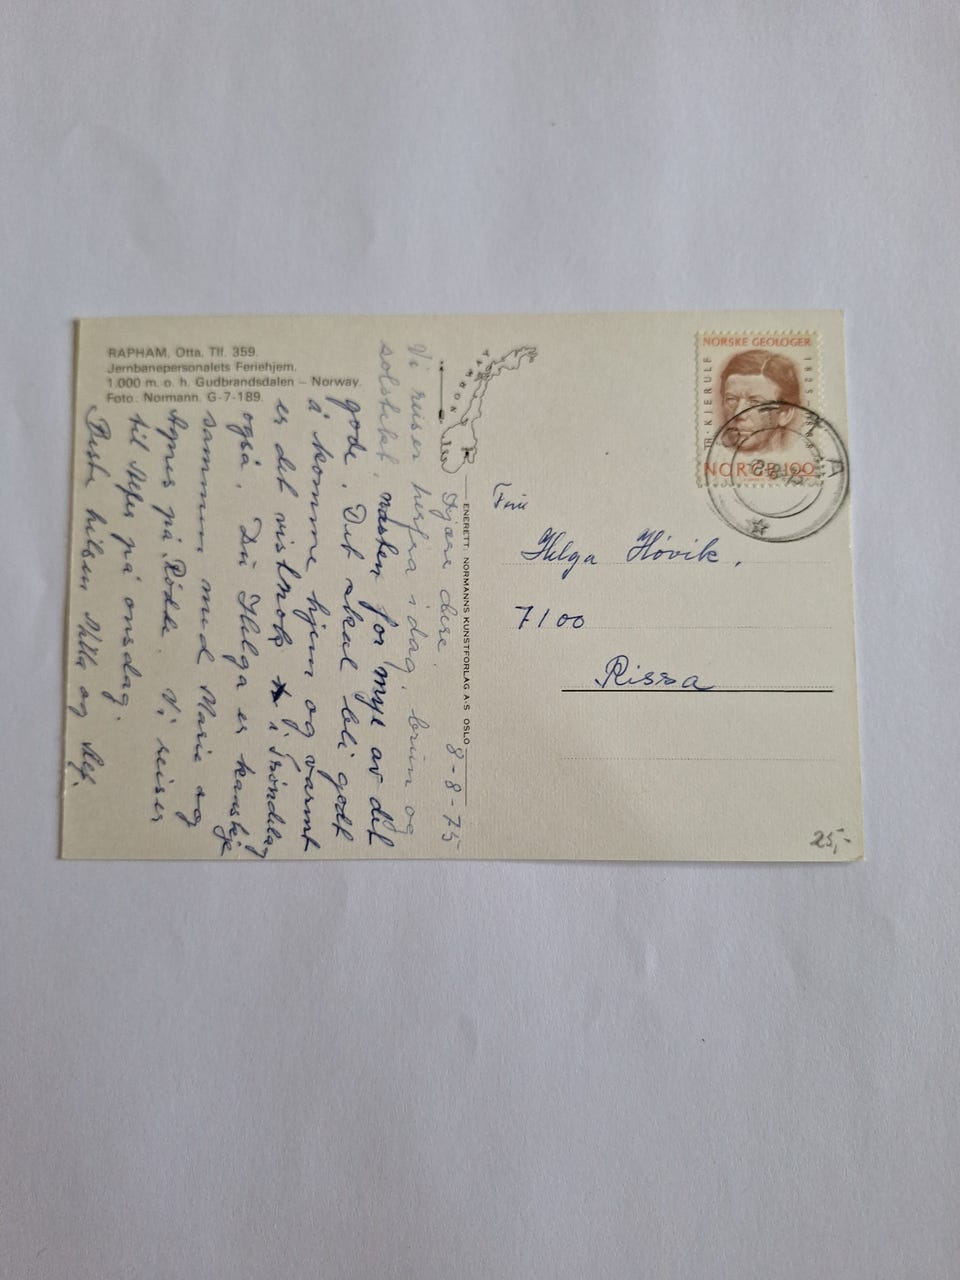 RAPHAM, Otta. Tlf. 359.
Jernbanepersonalets Feriehjem.
1.000 m. o. h. Gudbrandsdalen – Norway.
Foto: Normann. G-7-189.
NORWAY
ENERETT: NORMANNS KUNSTFORLAG A·S OSLO
8-8-75
Kjære dere.
Vi reiser herfra i dag, brun og
solstekt, nesten for mye av det
gode. Det skal bli godt
å komme hjem og varmt
er det vistnok i Trøndelag
også. Du Helga er kanskje
sammen med Marie og
Agnes på Rødde. Vi reiser
til på onsdag.
Beste hilsen og
NORSKE GEOLOGER
TH·KJERULF
1825–1888
NORGE 100
Helga Høvik,
7100
Rissa
25,-